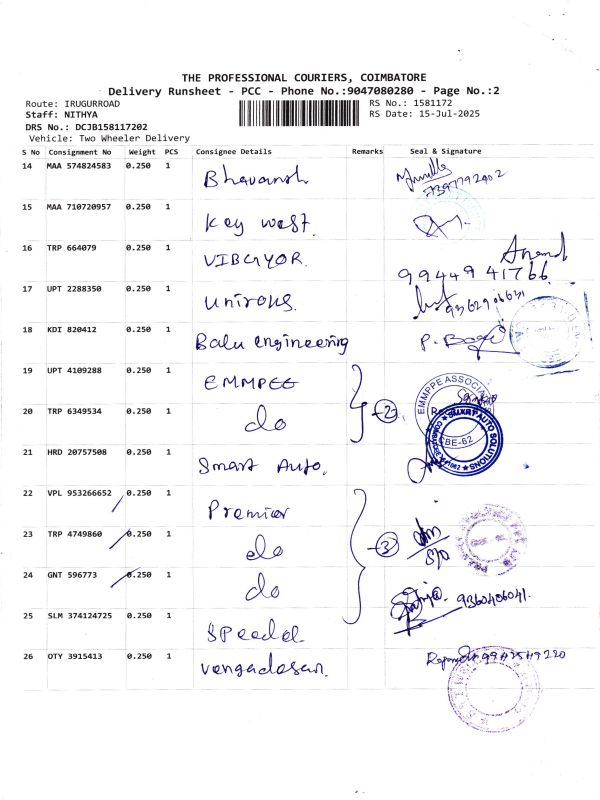 THE PROFESSIONAL COURIERS, COIMBATORE
Delivery Runsheet - PCC - Phone No.:9047080280 - Page No.:2
Route: IRUGURROAD
RS No.: 1581172
Staff: NITHYA
RS Date: 15-Jul-2025
DRS No.: DCJB158117202
Vehicle: Two Wheeler Delivery
S No Consignment No Weight PCS Consignee Details Remarks Seal & Signature
14 MAA 574824583 0.250 1 Bhavansh
15 MAA 710720957 0.250 1 Key west.
16 TRP 664079 0.250 1 VIBGYOR. Anand
99449 41766
17 UPT 2288350 0.250 1 unirous. 9362906631
18 KDI 820412 0.250 1 Balu engineering
19 UPT 4109288 0.250 1 EMMPEE
EMMPPE ASSOCIA
20 TRP 6349534 0.250 1 do 2
SMART AUTO SOLUTIONS
CBE-62
21 HRD 20757508 0.250 1 Smart Auto.
22 VPL 953266652 0.250 1 Premier
23 TRP 4749860 0.250 1 do 3
24 GNT 596773 0.250 1 do
25 SLM 374124725 0.250 1 9360406041.
26 OTY 3915413 0.250 1